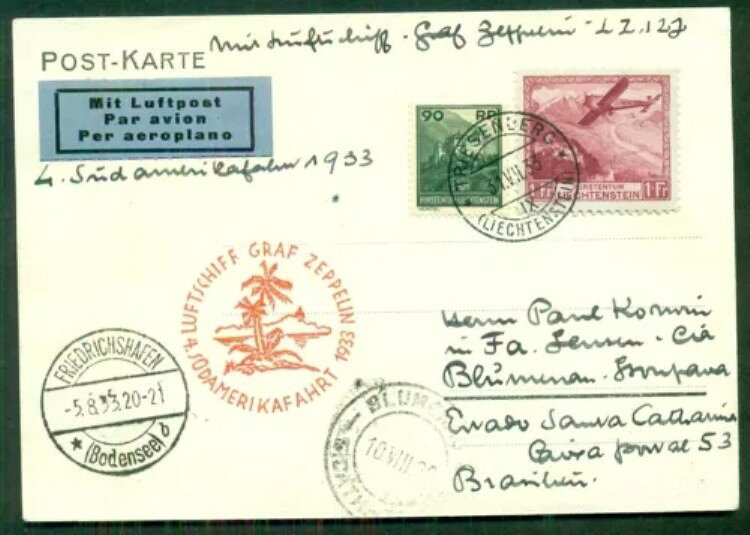 Mit Luftschiff - Graf Zeppelin - LZ.127
POST-KARTE
Mit Luftpost
Par avion
Per aeroplano
4. Südamerikafahrt 1933
90 RP
FÜRSTENTUM LIECHTENSTEIN
FÜRSTENTUM
LIECHTENSTEIN
1 Fr
TRIESENBERG
(LIECHTENSTEIN)
LUFTSCHIFF GRAF ZEPPELIN
4. SÜDAMERIKAFAHRT 1933
FRIEDRICHSHAFEN
-5.8.33.20-21
* (Bodensee) b
Herrn Paul
in Fa. Jensen - Cia
Blumenau
Santa Catharina
Caixa postal 53
Brasilien.
10 VIII